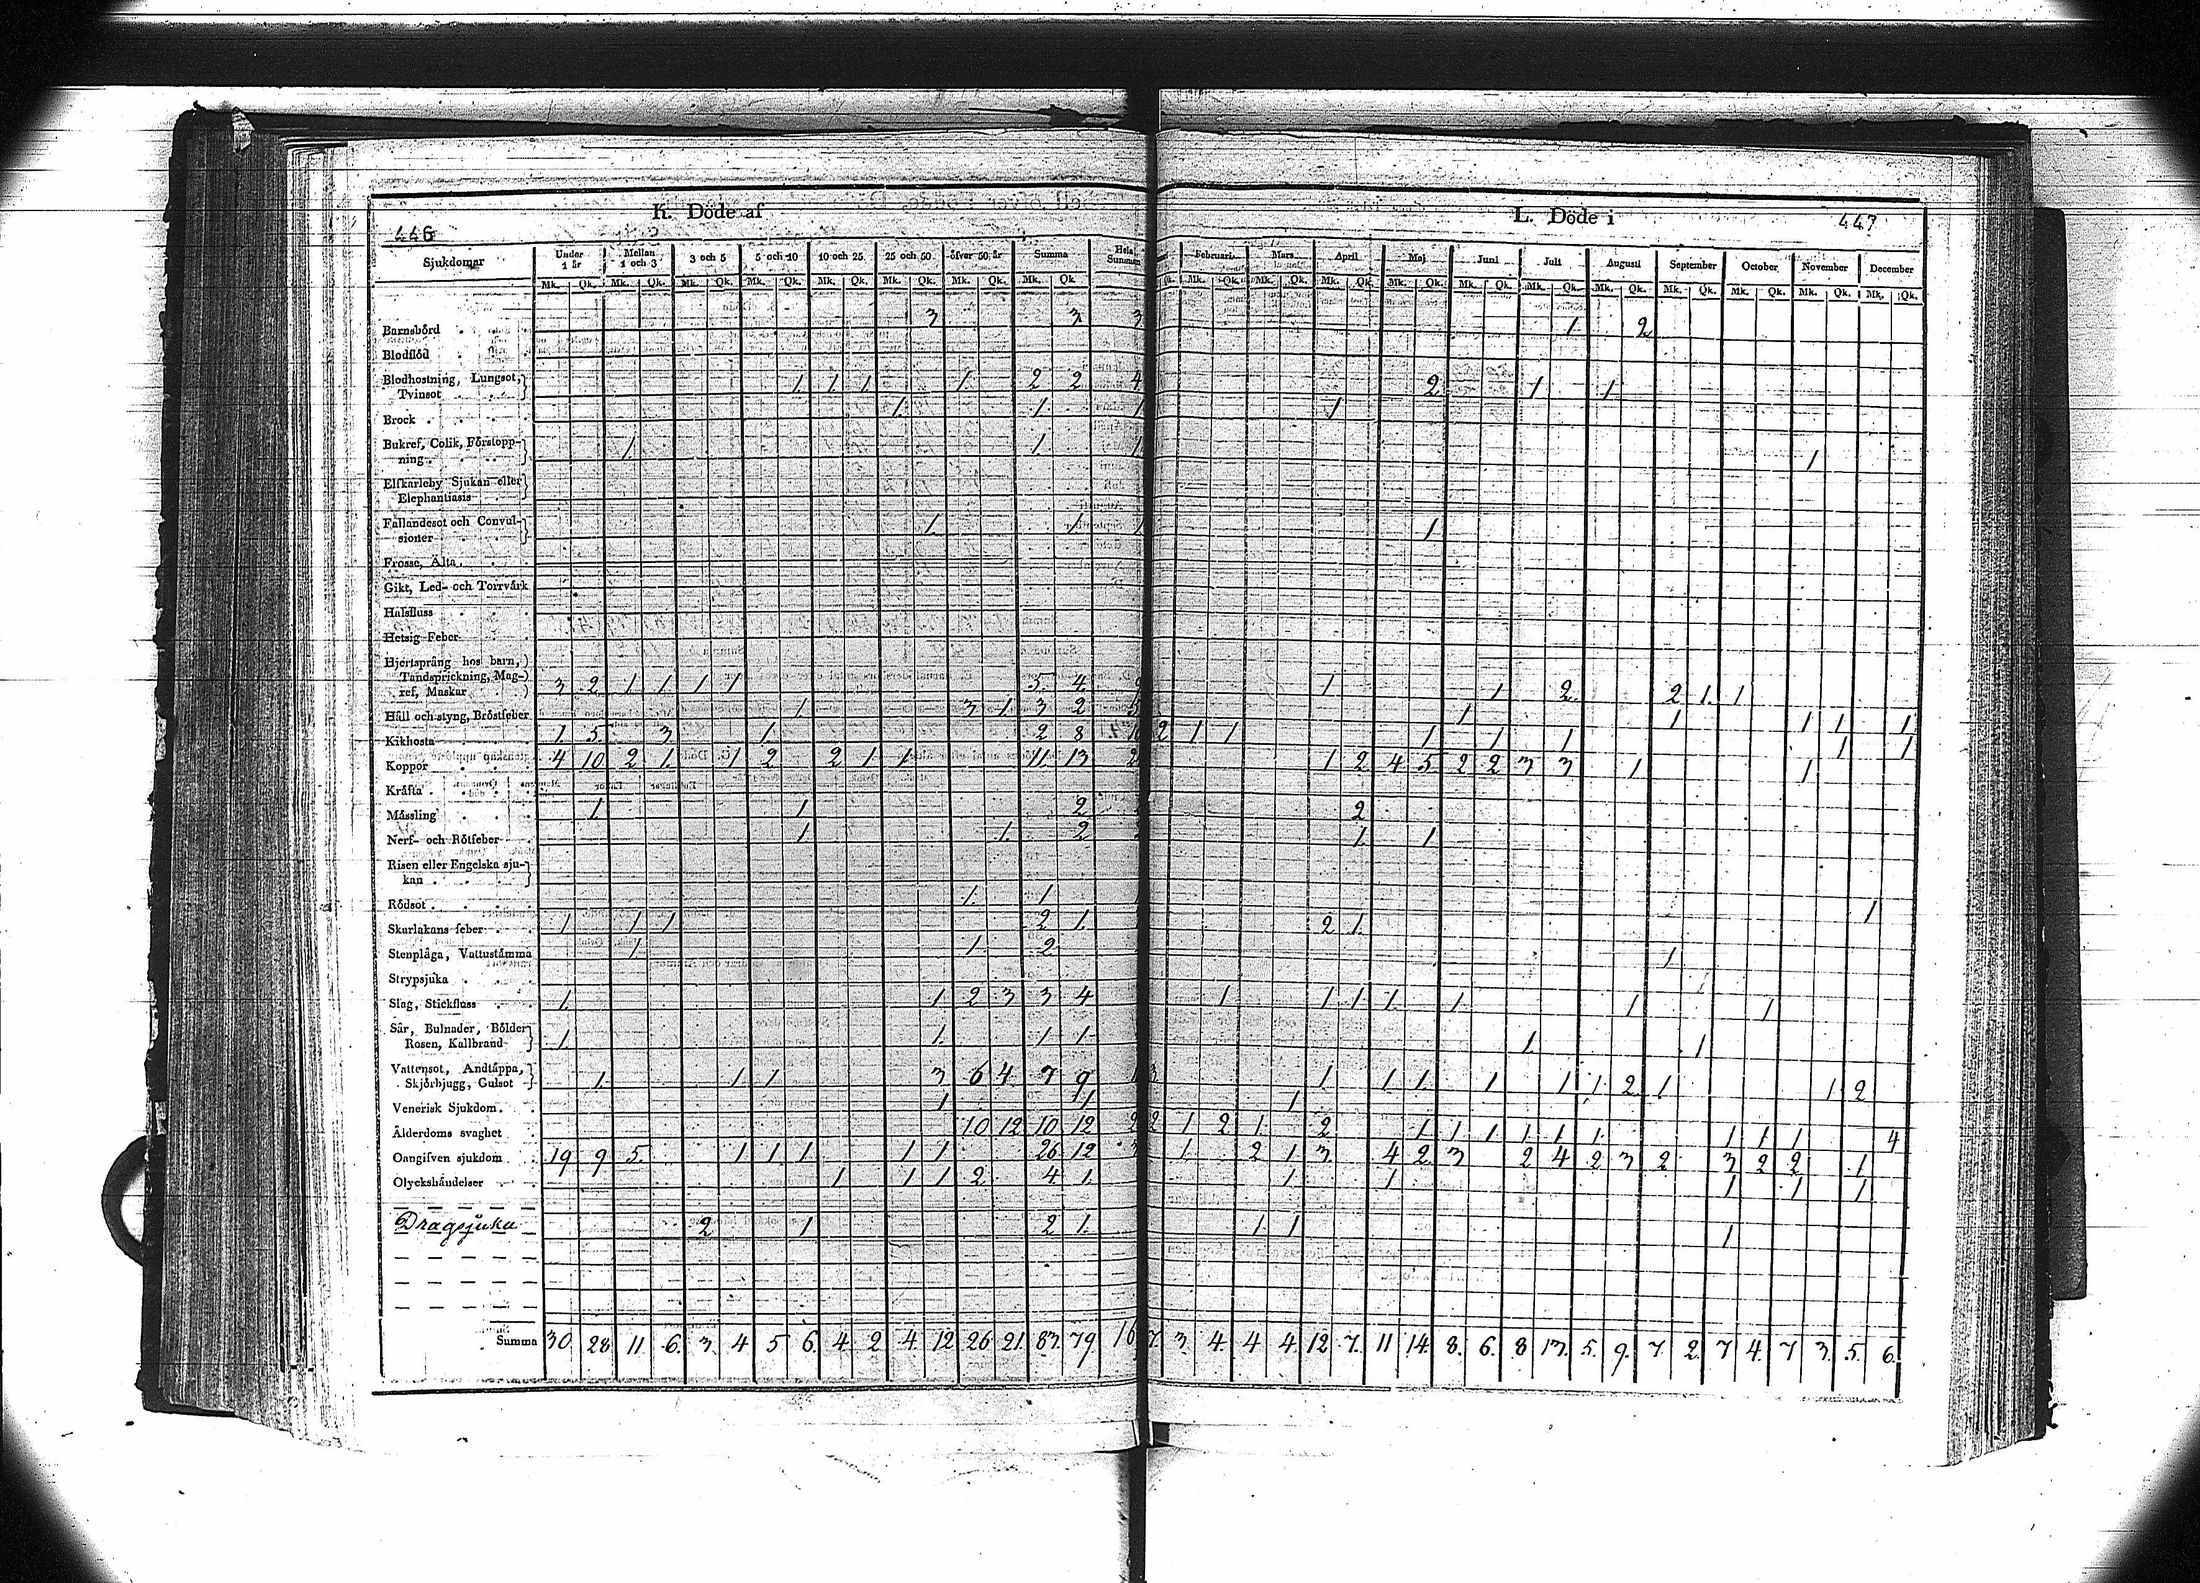 K. Döde af
L. Döde i
446
447
Sjukdomar Under 1 år Mellan 1 och 3 3 och 5 5 och 10 10 och 25 25 och 50 öfver 50 år Summa Hela Summan Februari Mars April Maj Juni Juli Augusti September October November December
Mk. Qk. Mk. Qk. Mk. Qk. Mk. Qk. Mk. Qk. Mk. Qk. Mk. Qk. Mk. Qk. Qk. Mk. Qk. Mk. Qk. Mk. Qk. Mk. Qk. Mk. Qk. Mk. Qk. Mk. Qk. Mk. Qk. Mk. Qk. Mk. Qk. Mk. Qk.
Barnsbörd 3 3 3 1 2
Blodflöd
Blodhostning, Lungsot,
Tvinsot 1 1 1 1 2 2 4 2 1 1
Brock 1 1 1 1
Bukref, Colik, Förstopp-
ning 1 1 1 1
Elfkarleby Sjukan eller
Elephantiasis
Fallandesot och Convul-
sioner 1 1 1 1
Frossa, Älta
Gikt, Led- och Torrvärk
Halsfluss
Hetsig Feber
Hjertsprång hos barn,
Tandsprickning, Mag-
ref, Maskar 3 2 1 1 1 1 5 4 1 1 2 2 1 1
Håll och styng, Bröstfeber 1 3 1 3 2 5 1 1 1 1 1
Kikhosta 1 5 3 1 2 8 10 2 1 1 1 1 1 1 1
Koppor 4 10 2 1 1 2 2 1 1 11 13 1 2 4 5 2 2 3 3 1 1
Kräfta
Mässling 1 1 2 2
Nerf- och Rötfeber 1 1 2 1 1
Risen eller Engelska sju-
kan
Rödsot 1 1 1
Skarlakans feber 1 1 1 2 1 2 1
Stenplåga, Vattustämma 1 1 2 1
Strypsjuka
Slag, Stickfluss 1 1 2 3 3 4 1 1 1 1 1 1 1
Sår, Bulnader, Bölder
Rosen, Kallbrand 1 1 1 1 1 1
Vattensot, Andtäppa,
Skjörbjugg, Gulsot 1 1 1 3 6 4 7 9 1 1 1 1 1 1 2 1 1 2
Venerisk Sjukdom 1 1 1
Ålderdoms svaghet 10 12 10 12 2 1 2 1 2 1 1 1 1 1 1 1 1 1 4
Oangifven sjukdom 19 9 5 1 1 1 1 1 26 12 1 2 1 3 4 2 3 2 4 2 3 2 3 2 2 1
Olyckshändelser 1 1 1 2 4 1 1 1 1 1 1
Dragsjuka 2 1 2 1 1 1 1
Summa 30 28 11 6 3 4 5 6 4 2 4 12 26 21 83 79 7 3 4 4 4 12 7 11 14 8 6 8 13 5 9 7 2 7 4 7 3 5 6